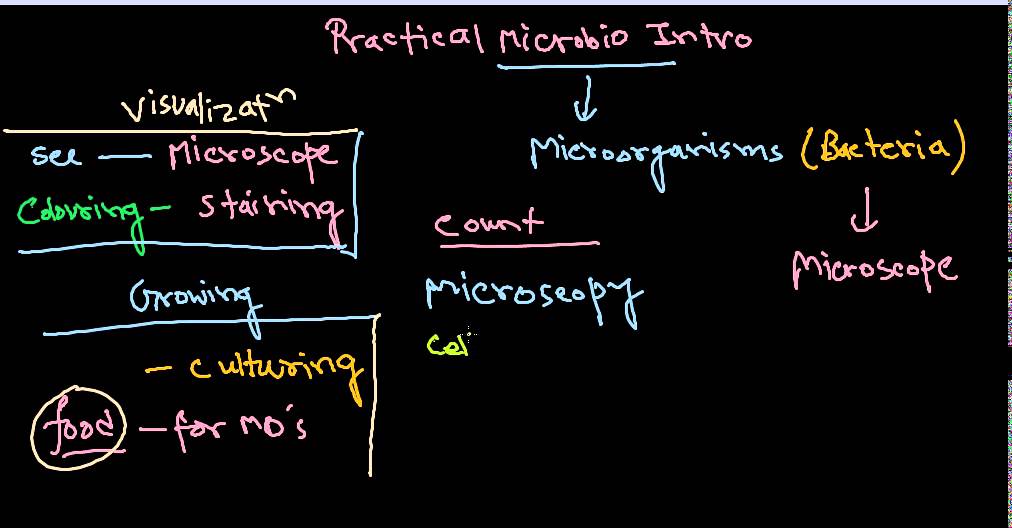 Practical Microbio Intro
Visualizatn
see — Microscope
Colouring - Staining
Microorganisms (Bacteria)
Microscope
Count
Microscopy
Cel
Growing
- Culturing
food - for MO's